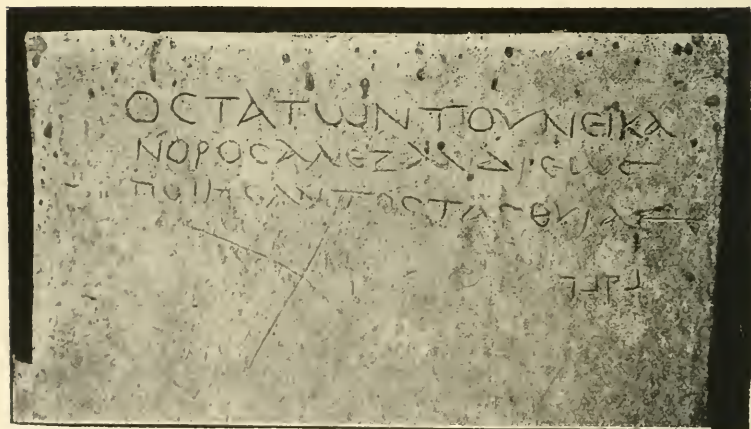 ΟϹΤΑΤωΝΤΟΥΝΕΙΚΑ
ΝΟΡΟϹΑΛΕΞΑΝΔΡΕωϹ
ΠΟΙΗϹΑΝΤΟϹΤΑϹΘΥΡΑϹ